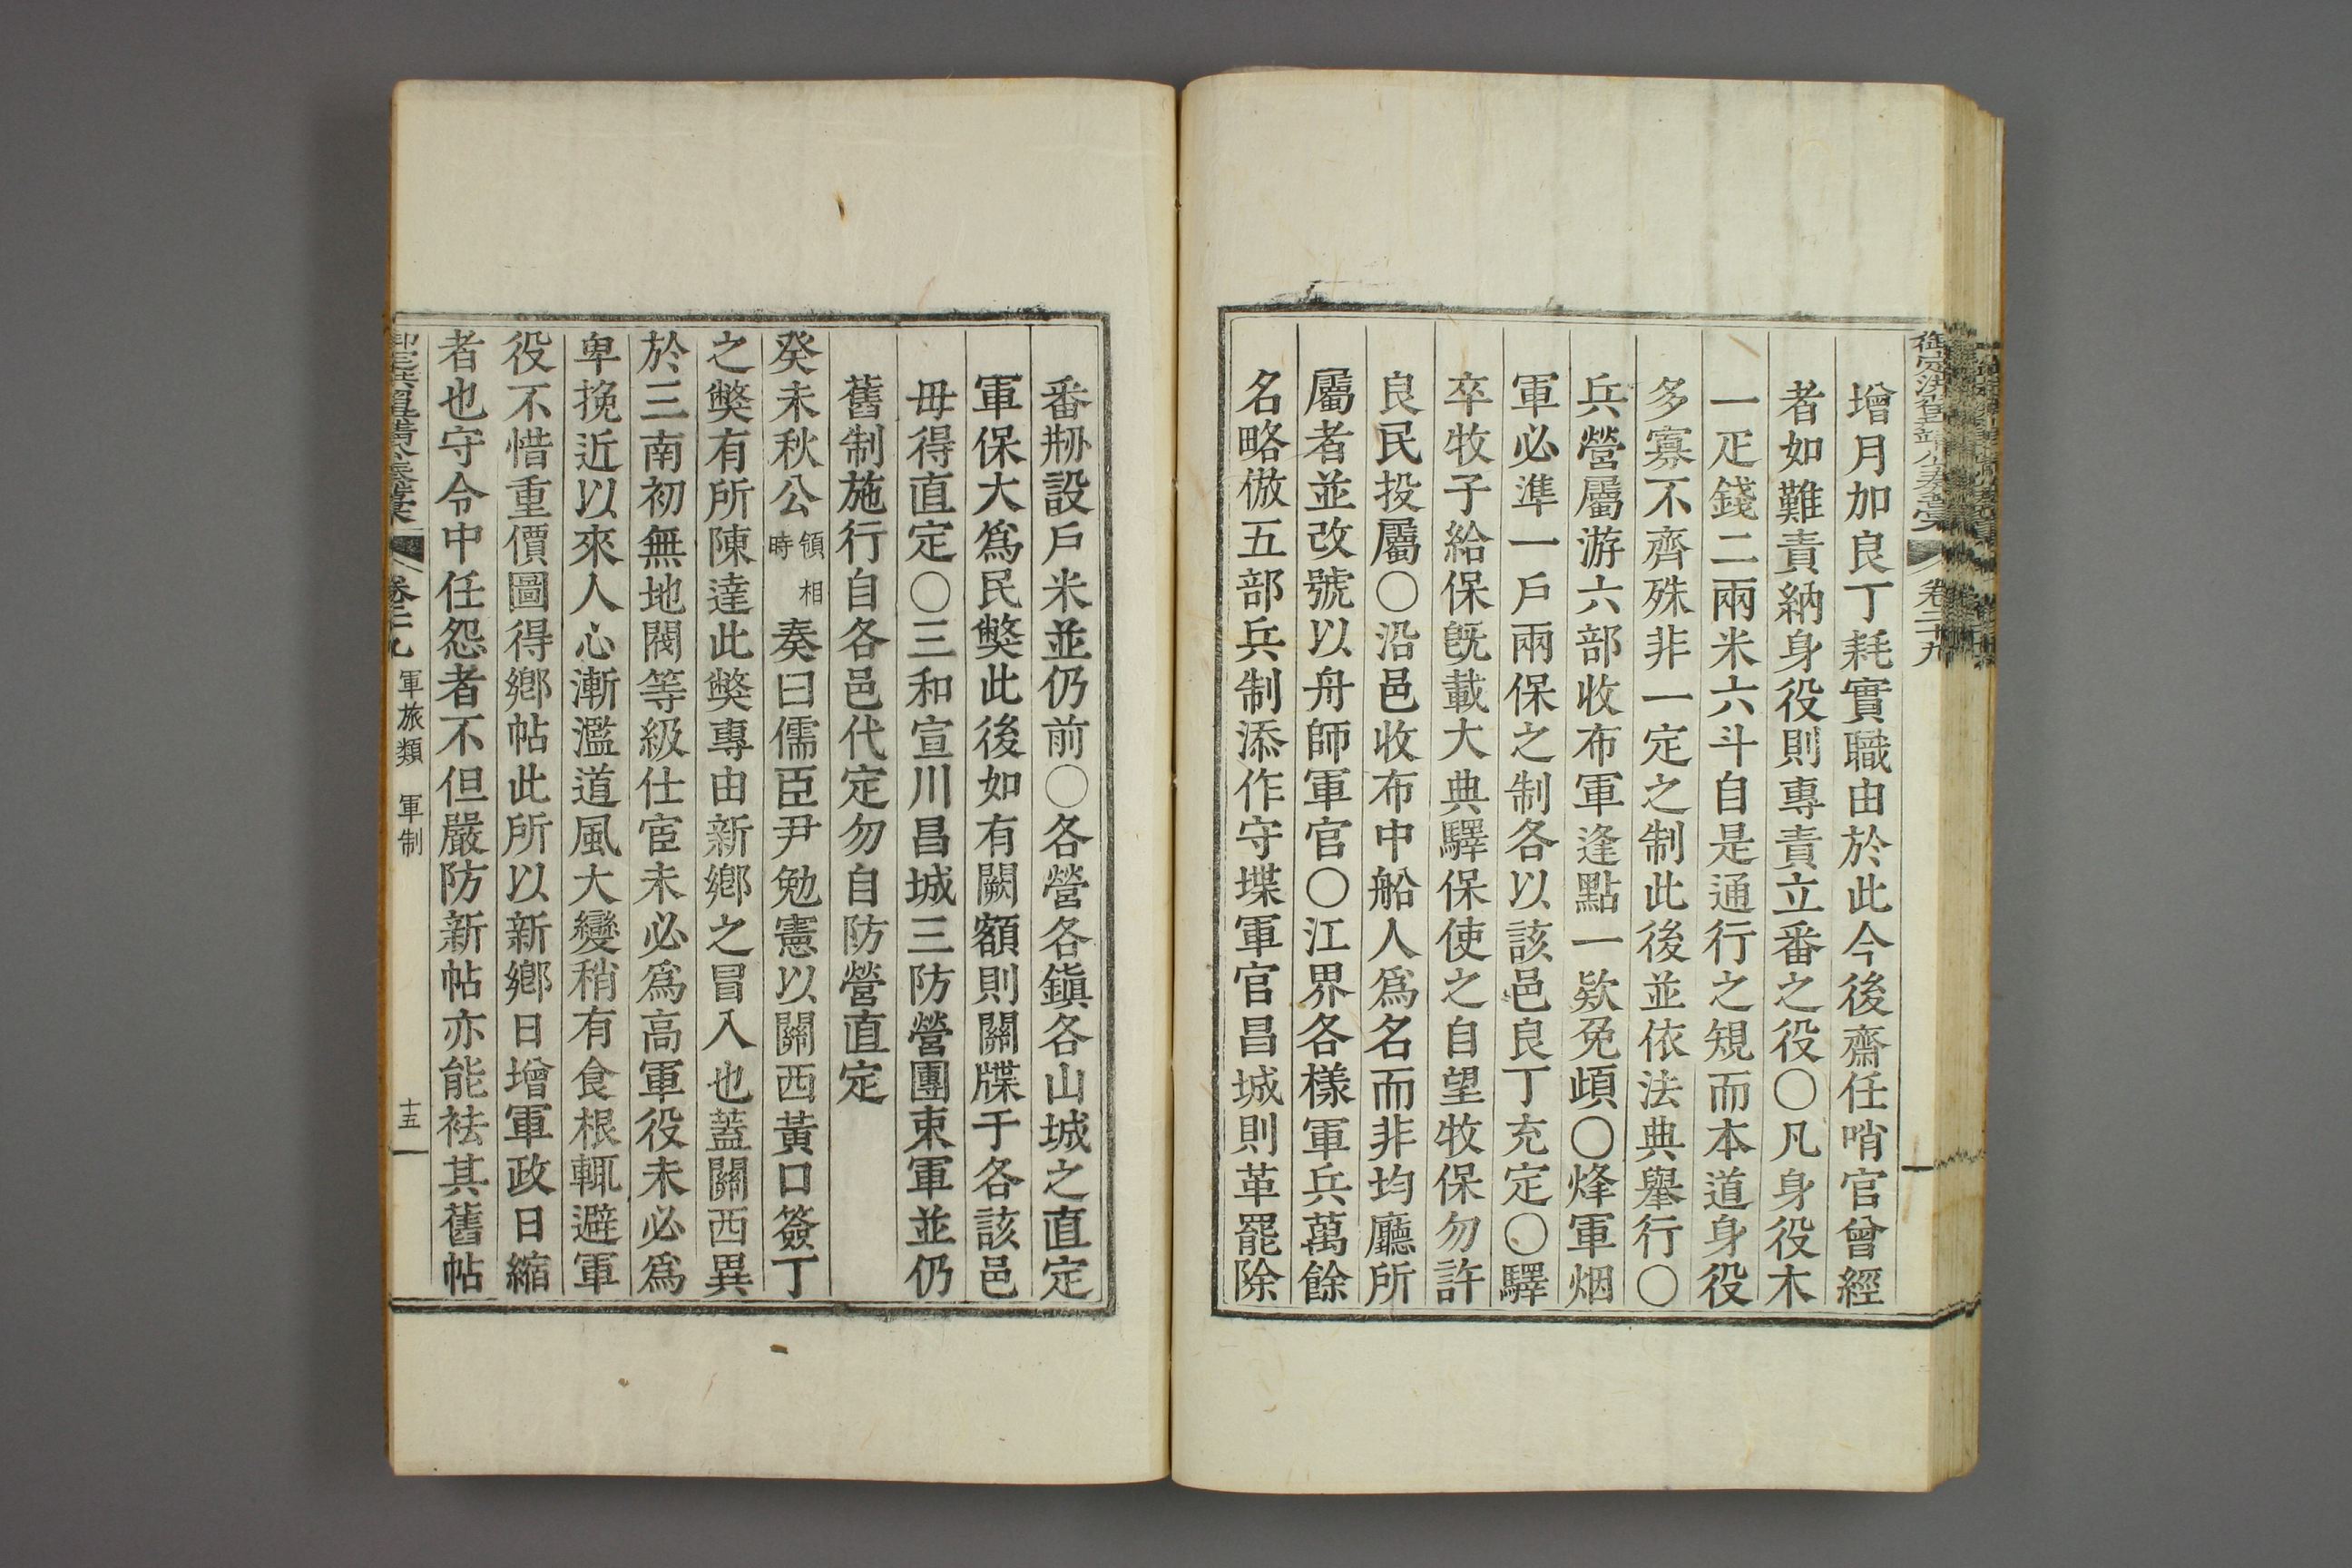 卷二十九
增月加良丁耗實職由於此今後齋任哨官曾經
者如難責納身役則專責立番之役〇凡身役木
一疋錢二兩米六斗自是通行之規而本道身役
多寡不齊殊非一定之制此後並依法典舉行〇
兵營屬游六部收布軍逢點一欵免頉〇烽軍烟
軍必準一戶兩保之制各以該邑良丁充定〇驛
卒牧子給保旣載大典驛保使之自望牧保勿許
良民投屬〇沿邑收布中船人爲名而非均廳所
屬者並改號以舟師軍官〇江界各樣軍兵萬餘
名略倣五部兵制添作守堞軍官昌城則革罷除
番刱設戶米並仍前〇各營各鎭各山城之直定
軍保大爲民弊此後如有闕額則關牒于各該邑
毋得直定〇三和宣川昌城三防營團束軍並仍
舊制施行自各邑代定勿自防營直定
癸未秋公領相時奏曰儒臣尹勉憲以關西黃口簽丁
之弊有所陳達此弊專由新鄕之冒入也蓋關西異
於三南初無地閥等級仕宦未必爲高軍役未必爲
卑挽近以來人心漸濫道風大變稍有食根輒避軍
役不惜重價圖得鄕帖此所以新鄕日增軍政日縮
者也守令中任怨者不但嚴防新帖亦能袪其舊帖
軍旅類 軍制 十五